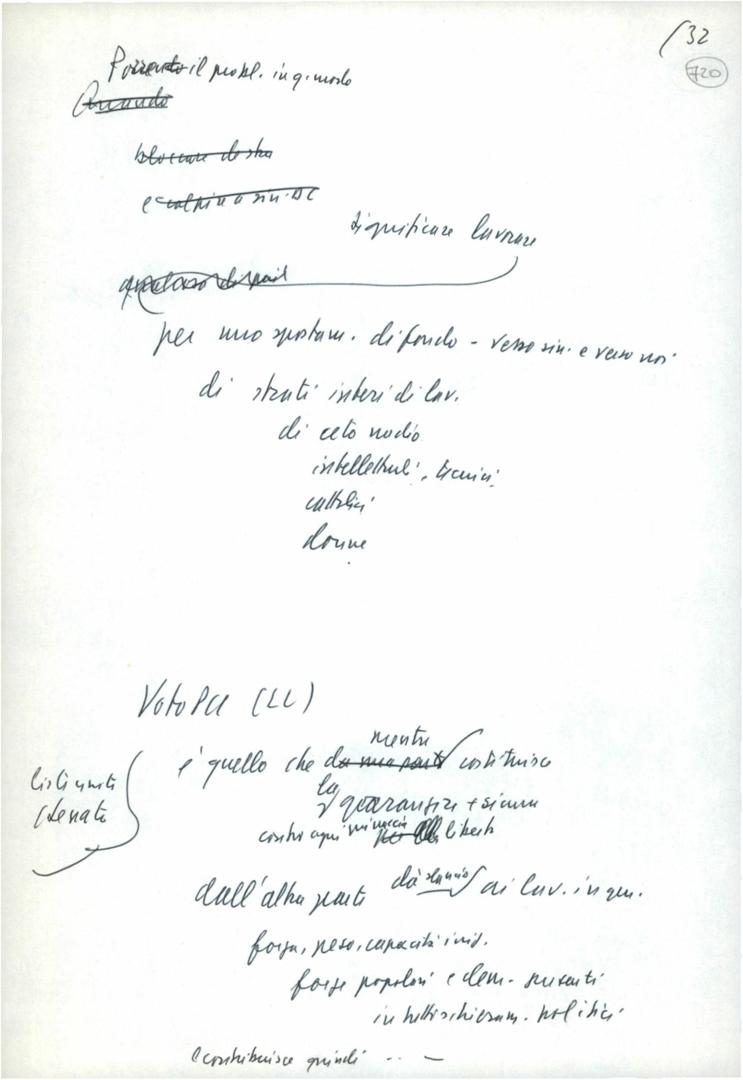 /32
720
Ponendo il probl. in q. modo
Quando
bloccare destra
e colpire a sin. DC
significare lavorare
per uno spostam. di fondo - verso sin. e verso noi
di strati interi di lav.
di ceto medio
intellettuali, tecnici
cattolici
donne
Voto PCI (LL)
mentre
è quello che da una parte costituisce
la
garanzia + sicura
contro ogni minaccia libertà
Liste unite
Senato
dall'altra parte dà slancio ai lav. in gen.
forza, peso, capacità
forze popolari e dem. presenti
in tutti schieram. politici
e contribuisce quindi .. -